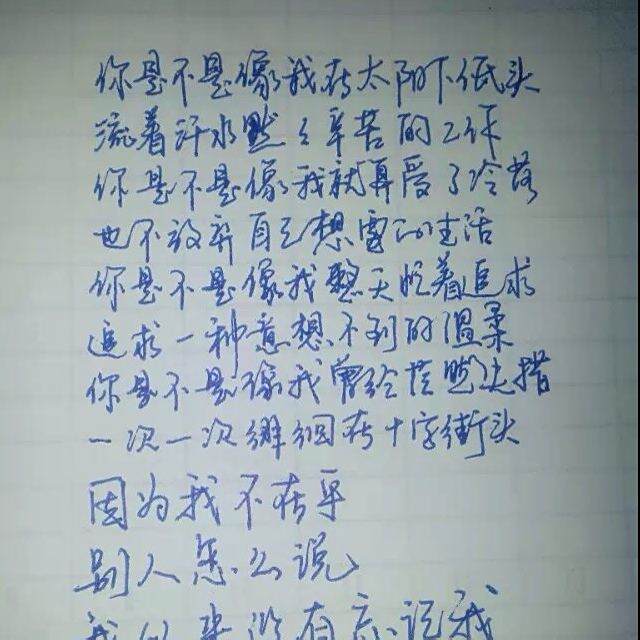 你是不是像我在太阳下低头
流着汗水默々辛苦的工作
你是不是像我就算受了冷落
也不放弃自己想要的生活
你是不是像我整天忙着追求
追求一种意想不到的温柔
你是不是像我曾经茫然失措
一次一次徘徊在十字街头
因为我不在乎
别人怎么说
我从来没有忘记我